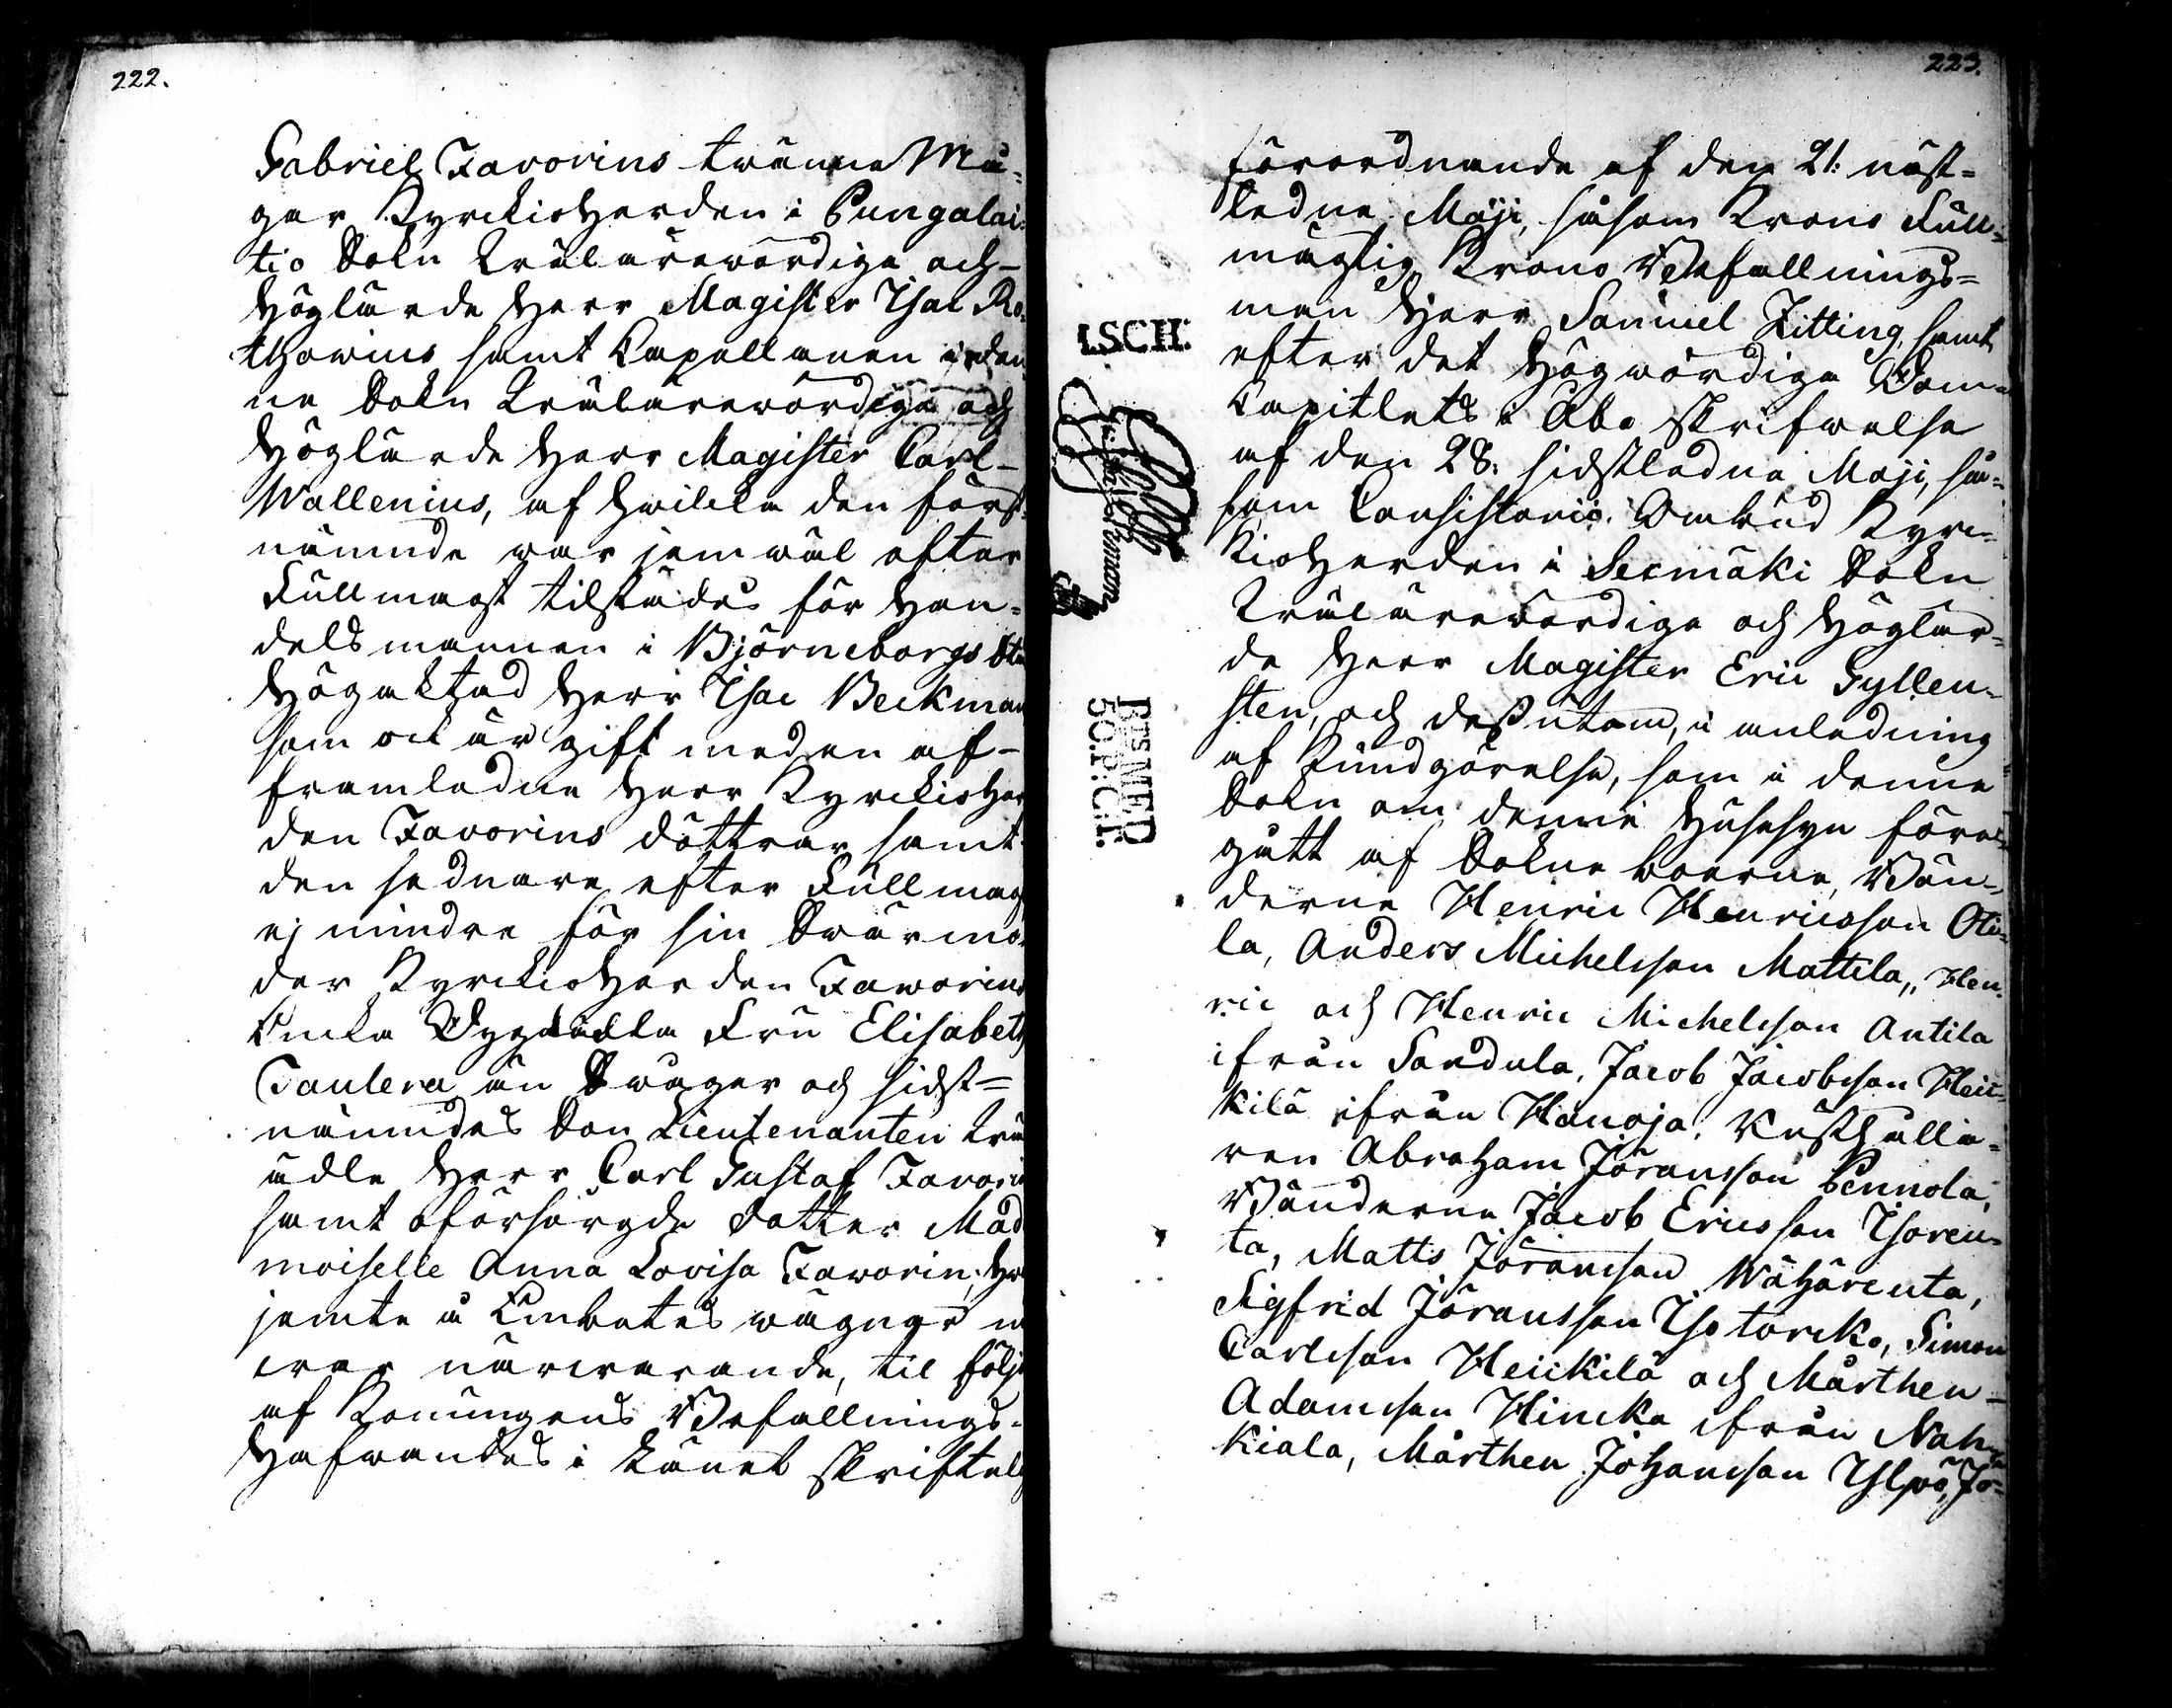 222.
Gabriel Favorins twänne Må-
gar Kyrckioherden i Pungalai-
tio Sokn Wälärewördige och
Höglärde Herr Magister Isac Ro-
thovius samt Capellanen i den-
ne Sokn Wälärewördige och
Höglärde Herr Magister Carl
Wallenius, af hwilcka den först-
nämnde war jemwäl efter
Fullmagt tilstädes för Han-
delsmannen i Björneborgs Sta
Högaktad Herr Isac Beckman
som ock är gift med en af
framledne Herr Kyrckioher
den Favorins döttrar samt
den sednare efter Fullmag
ej mindre för sin Swärmo-
der Kyrckioherden Faworins
Encka Dygdädla Fru Elisabeth
Taulera än Swåger och sidst-
nämndes Son Lieutenanten Wäl
ädle Herr Carl Gustaf Favorin
samt oförsörgde dotter Mad
moiselle Anna Lovisa Faworin; Hw
jemte å Embetes wägnar w
war närwarande, til följe
af Konungens Befallnings-
hafwandes i Länet skriftel
223.
förordnande af den 21: näst-
ledne Maji, såsom Krono Full-
mägtig Krono Befallnings-
man Herr Samuel Zitting, samt
efter det Högwördige Dom-
Capitlets i Åbo skrifwelse
af den 28: sidstledne Maji, så-
som Consistorii Ombud Kyrc-
kioherden i Secmäki Sokn
Wälärewördige och Höglär-
de Herr Magister Eric Gyllen-
sten, och dessutom, i anledning
af Kundgörelse, som i denne
Sokn om denne Husesyn före-
gått af Sokneboerne, Bön-
derne Henric Henricsson Oli-
la, Anders Michelsson Mattila, Hen-
ric och Henric Michelsson Antila
ifrån Sardula, Jacob Jacobsson Heic-
kilä ifrån Hanoja, Rusthålla-
ren Abraham Jöransson Pennola,
Bönderne Jacob Ericsson Isoren-
ta, Matts Jöransson Wähärenta,
Sigfrid Jöransson Isotorcko, Simon
Carlsson Heickilä och Mårthen
Adamsson Hincka ifrån Nah-
kiala, Mårthen Johansson Ylpö, Jö-
LSCH:
BTS MED
50.P:C.P.